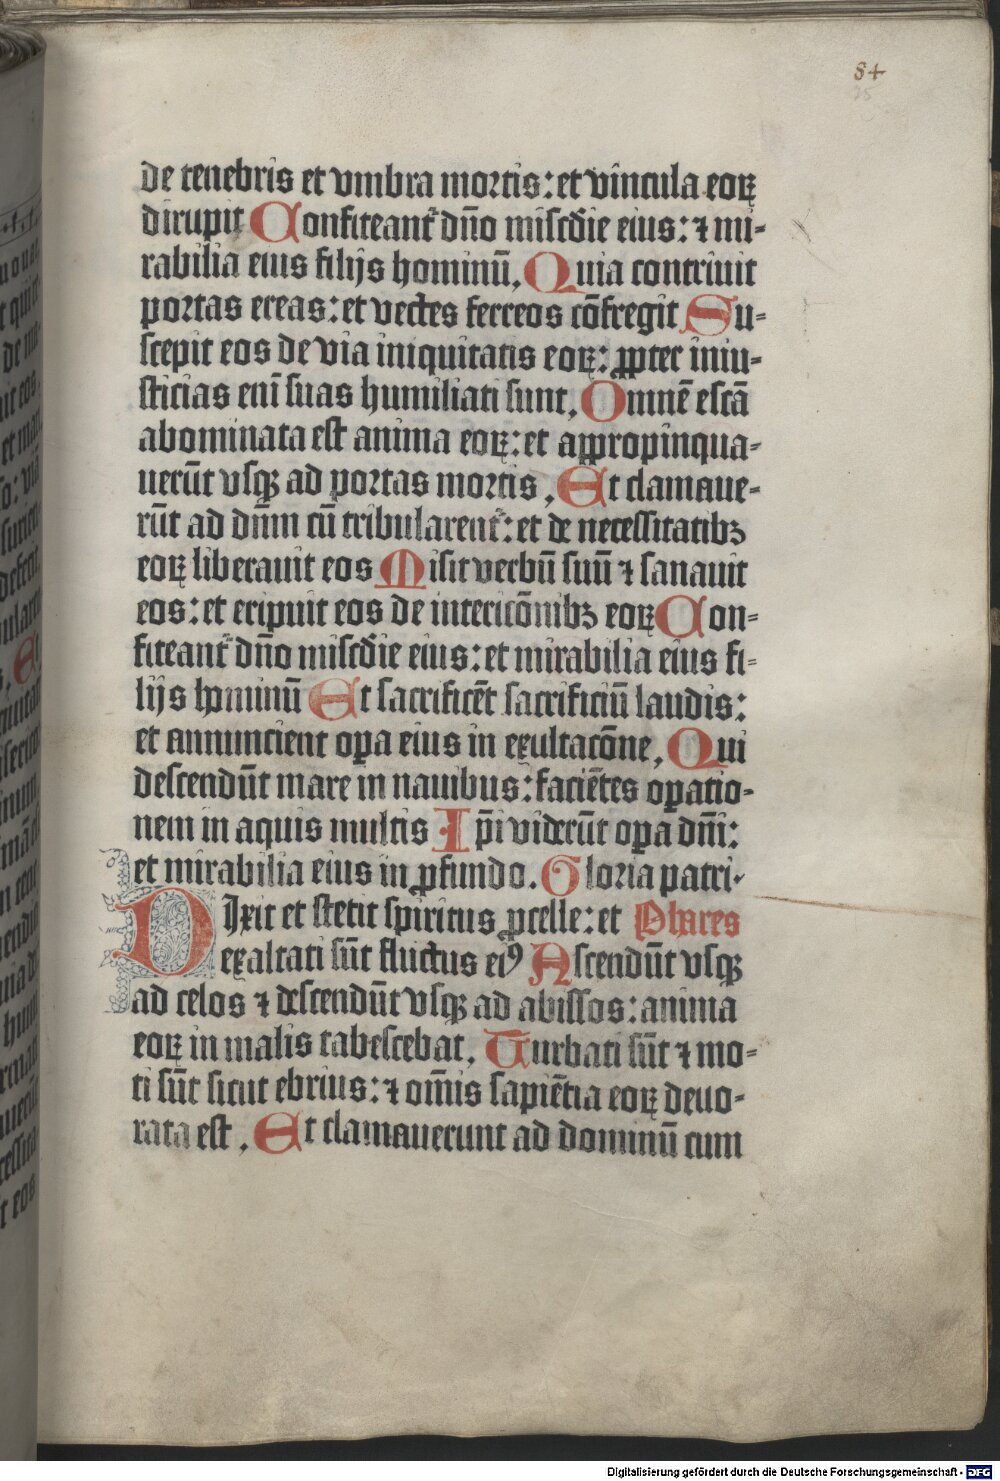 84
25
de tenebris et vmbra mortis: et vincula eoꝝ
dirupit Confiteant᷑ dn̄o misc̄die eius: ⁊ mi-
rabilia eius filijs hominū, Quia contriuit
portas ereas: et vectes ferreos cōfregit Su-
scepit eos de via iniquitatis eoꝝ: ꝓpter iniu-
sticias enī suas humiliati sunt, Omnē escā
abominata est anima eoꝝ: et appropinqua-
uerūt vsqꝫ ad portas mortis, Et clamaue-
rūt ad dn̄m cū tribularent᷑: et de necessitatibꝫ
eoꝝ liberauit eos Misit verbū suū ⁊ sanauit
eos: et eripuit eos de intericōnibꝫ eoꝝ Con-
fiteant᷑ dn̄o misc̄die eius: et mirabilia eius fi-
lijs hominū Et sacrificēt sacrificiū laudis:
et annuncient oꝑa eius in exultacōne, Qui
descendūt mare in nauibus: faciētes oꝑatio-
nem in aquis multis Ip̄i viderūt oꝑa dn̄i:
et mirabilia eius in ꝓfundo. Gloria patri.
Dixit et stetit spiritus ꝓcelle: et
exaltati sūt fluctus eiꝰ Ascendūt vsqꝫ
ad celos ⁊ descendūt vsqꝫ ad abissos: anima
eoꝝ in malis tabescebat, Turbati sūt ⁊ mo-
ti sūt sicut ebrius: ⁊ om̄is sapiētia eoꝝ deuo-
rata est, Et clamauerunt ad dominū cum
Digitalisierung gefördert durch die Deutsche Forschungsgemeinschaft - DFG